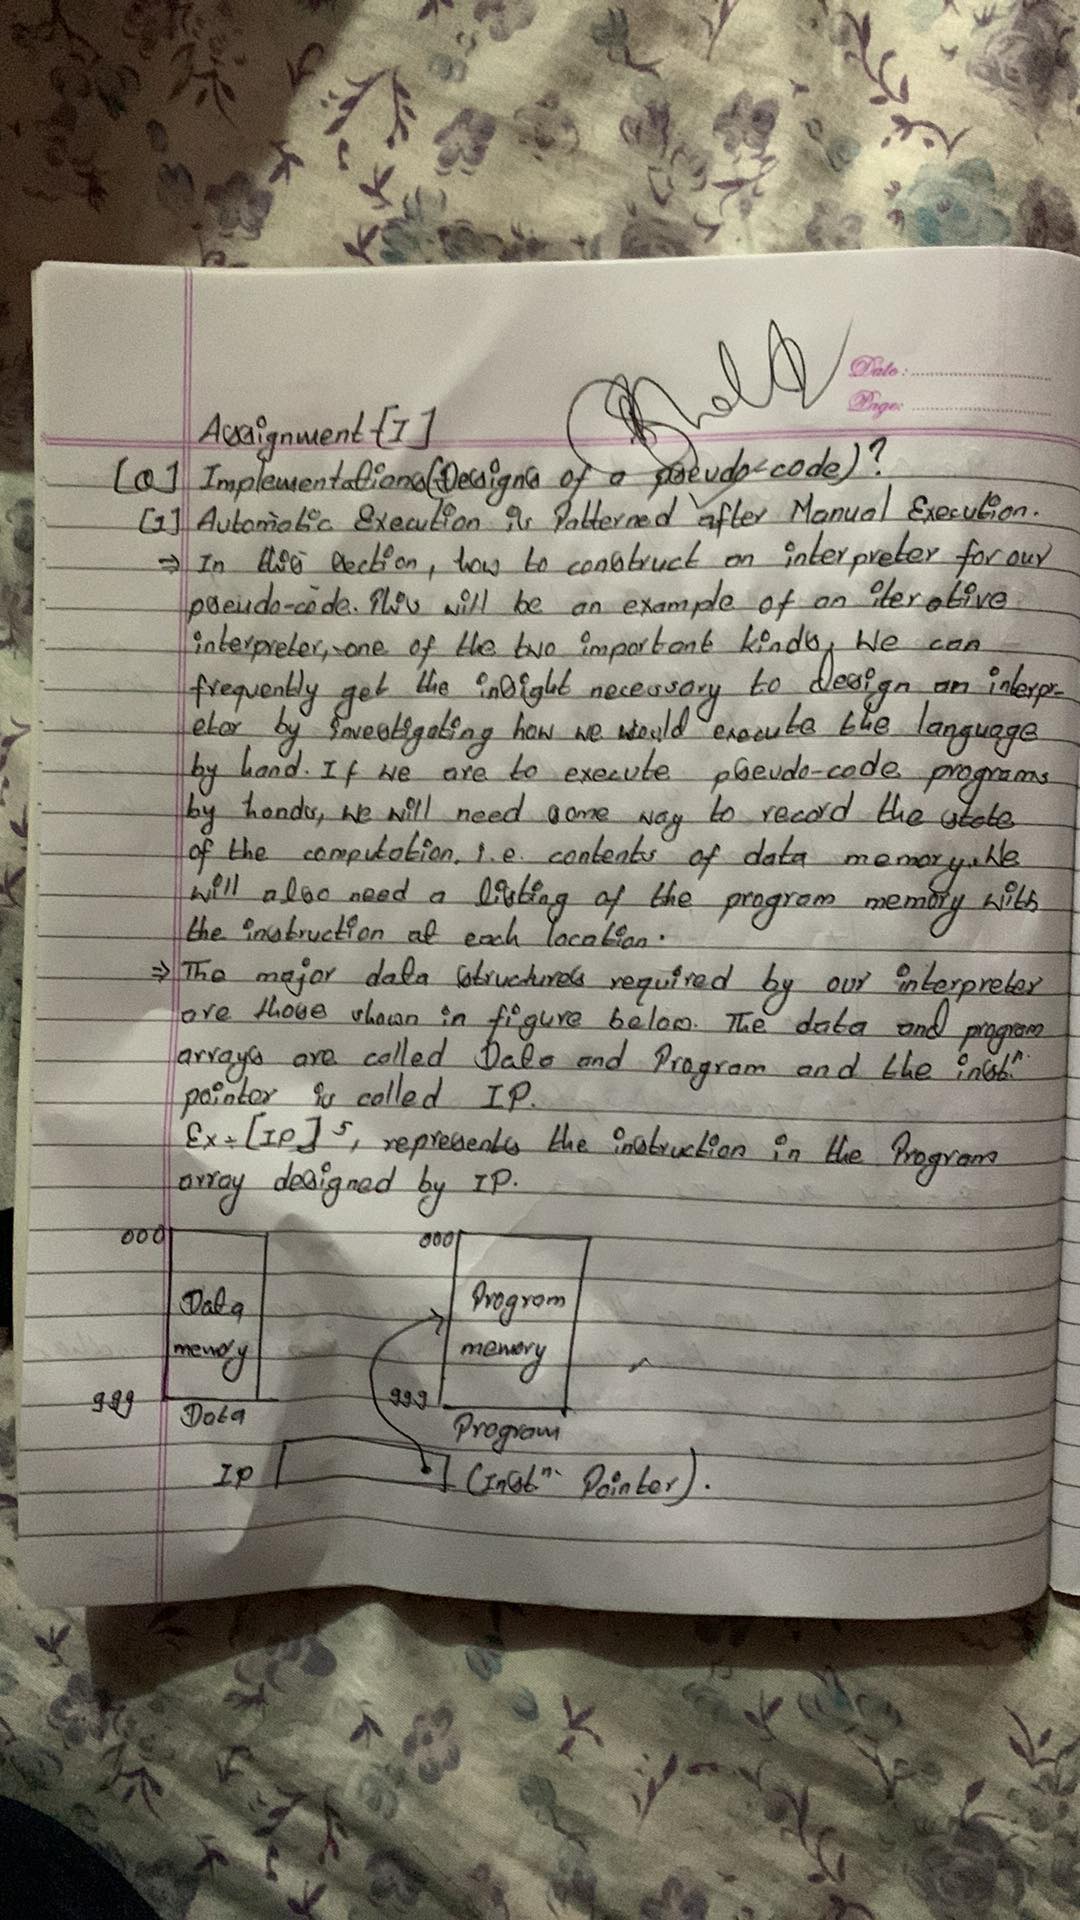 Date:
Page:
Assignment-[I]
[Q] Implementations(Designs of a pseudo-code)?
[1] Automatic Execution is Patterned after Manual Execution.
⇒ In this section, how to construct an interpreter for our
pseudo-code. This will be an example of an iterative
interpreter, one of the two important kinds, We can
frequently get the insight necessary to design an interpr-
etor by investigating how we would execute the language
by hand. If we are to execute pseudo-code programs
by hands, we will need some way to record the state
of the computation, i.e. contents of data memory. We
will also need a listing of the program memory with
the instruction at each location.
⇒ The major data structures required by our interpreter
are those shown in figure below. The data and program
arrays are called Data and Program and the instⁿ.
pointer is called IP.
Ex:- [IP] 5, represents the instruction in the Program
array designed by IP.
000 000
Data Program
memory memory
999 999
Data Program
IP (Instⁿ. Pointer).